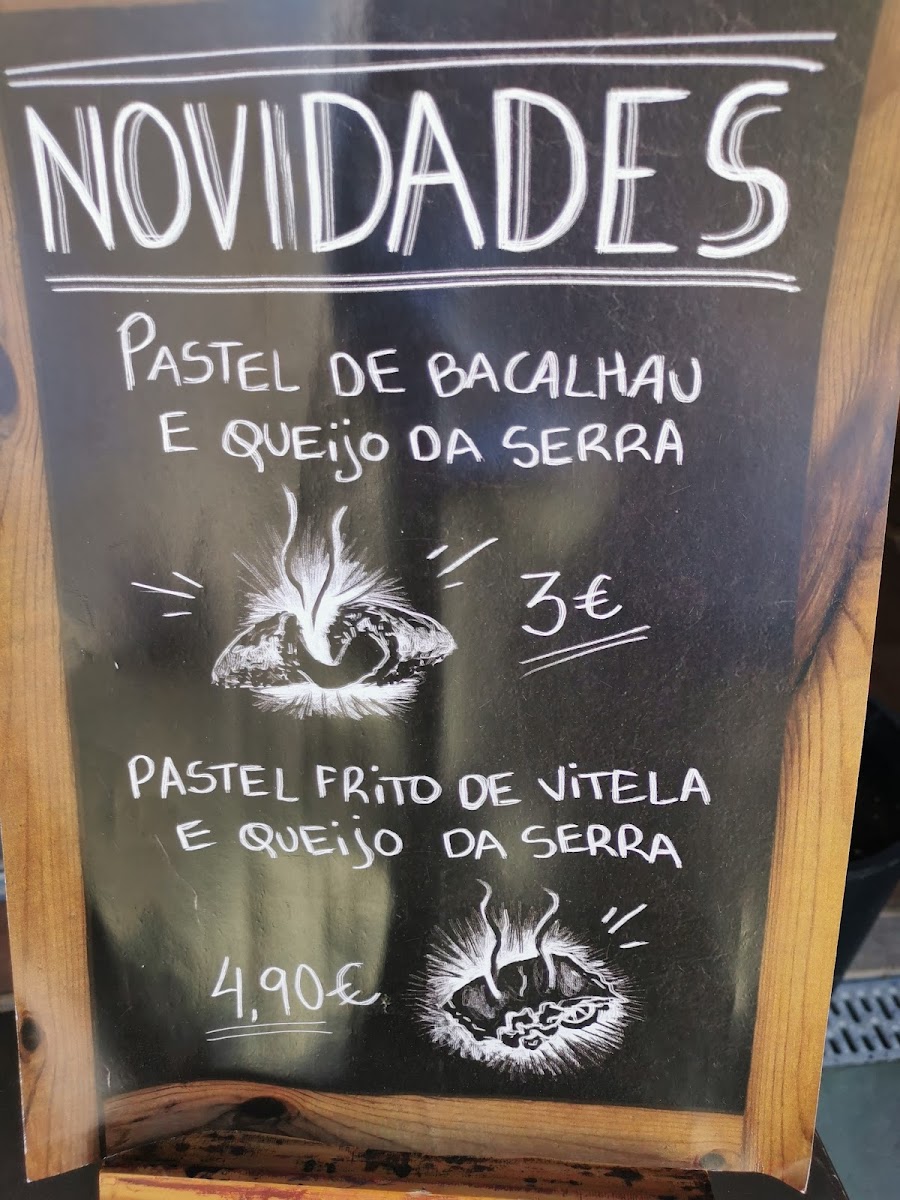 NOVIDADES
PASTEL DE BACALHAU
E QUEijO DA SERRA
3€
PASTEL FRiTO DE ViTELA
E QUEijO DA SERRA
4,90€